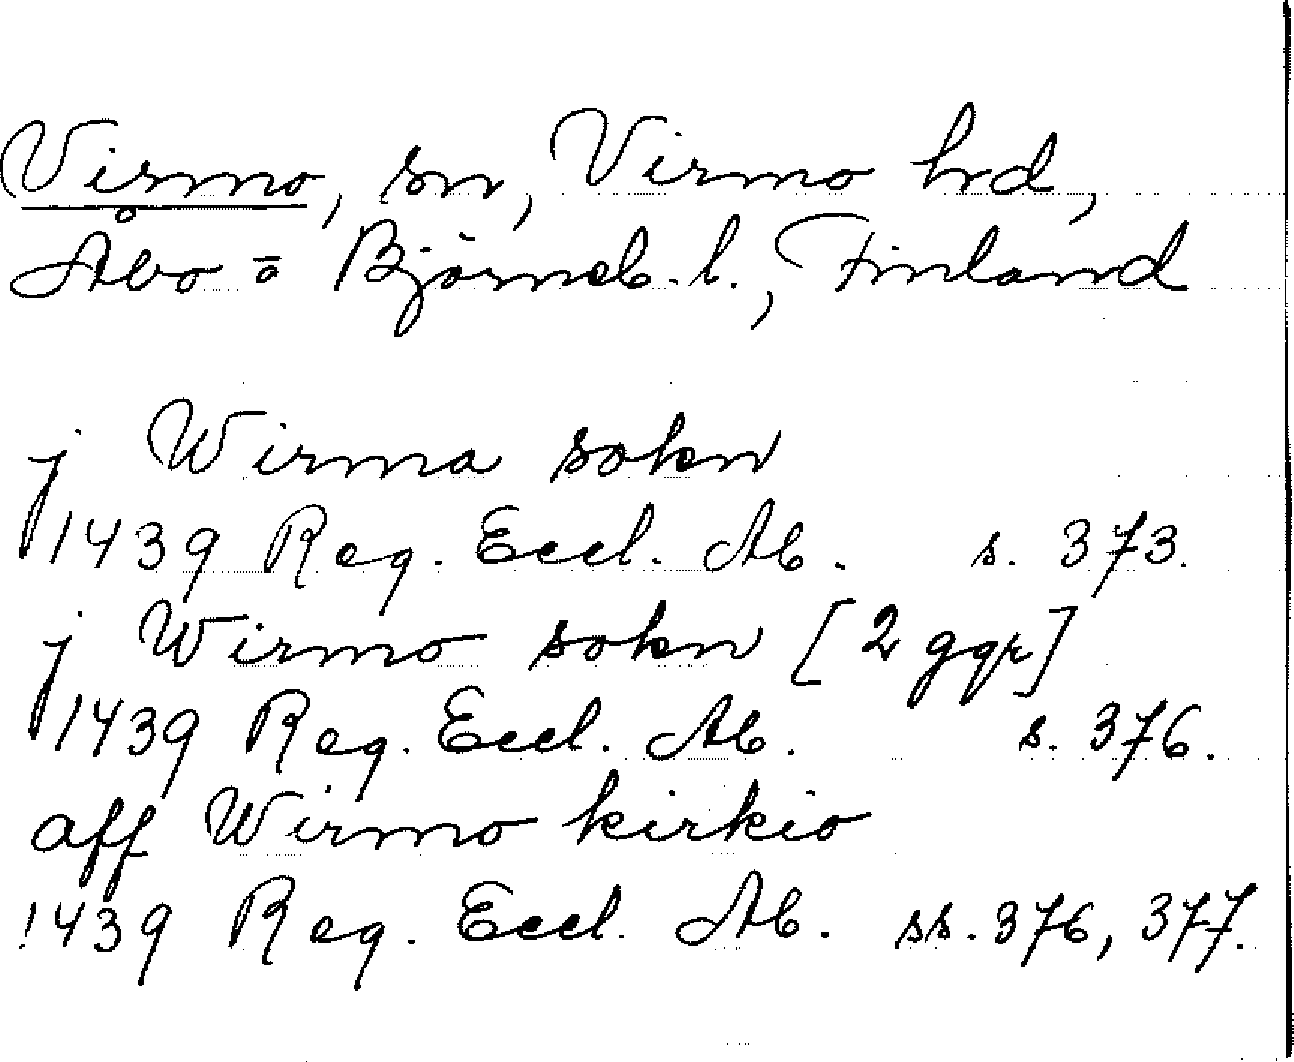 Virmo, sn, Virmo hrd,
Åbo o Björneb. l., Finland
j Wirma sokn
1439 Reg. Eccl. Ab. s. 373.
j Wirmo sokn [2 ggr]
1439 Reg. Eccl. Ab. s. 376.
aff Wirmo kirkio
1439 Reg. Eccl. Ab. ss. 376, 377.